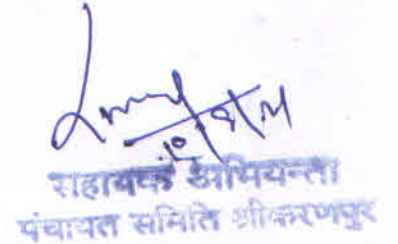 सहायक अभियन्ता
पंचायत समिति श्रीकरणपुर